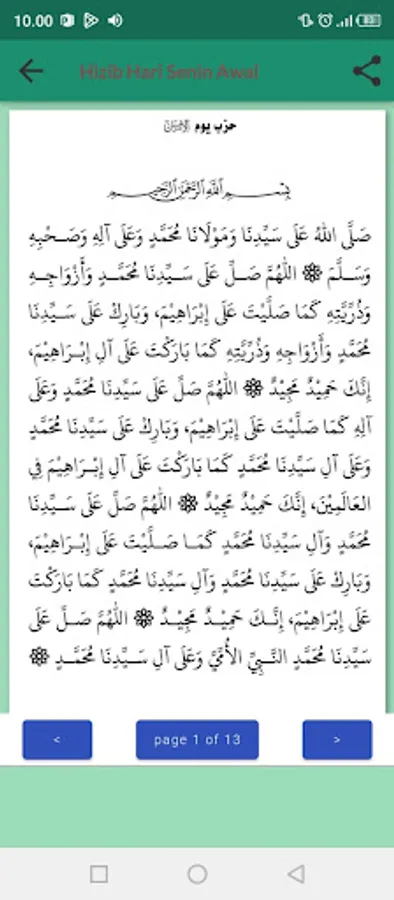 10.00
Hizib Hari Senin Awal
حزب يوم الإثنين
بِسْمِ اللَّهِ الرَّحْمَنِ الرَّحِيمِ
صَلَّى اللهُ عَلَى سَيِّدِنَا وَمَوْلَانَا مُحَمَّدٍ وَعَلَى آلِهِ وَصَحْبِهِ
وَسَلَّمَ ۞ اللَّهُمَّ صَلِّ عَلَى سَيِّدِنَا مُحَمَّدٍ وَأَزْوَاجِهِ
وَذُرِّيَّتِهِ كَمَا صَلَّيْتَ عَلَى إِبْرَاهِيْمَ، وَبَارِكْ عَلَى سَيِّدِنَا
مُحَمَّدٍ وَأَزْوَاجِهِ وَذُرِّيَّتِهِ كَمَا بَارَكْتَ عَلَى آلِ إِبْرَاهِيْمَ،
إِنَّكَ حَمِيْدٌ مَجِيْدٌ ۞ اللَّهُمَّ صَلِّ عَلَى سَيِّدِنَا مُحَمَّدٍ وَعَلَى
آلِهِ كَمَا صَلَّيْتَ عَلَى إِبْرَاهِيْمَ، وَبَارِكْ عَلَى سَيِّدِنَا مُحَمَّدٍ
وَعَلَى آلِ سَيِّدِنَا مُحَمَّدٍ كَمَا بَارَكْتَ عَلَى آلِ إِبْرَاهِيْمَ فِي
العَالَمِيْنَ، إِنَّكَ حَمِيْدٌ مَجِيْدٌ ۞ اللَّهُمَّ صَلِّ عَلَى سَيِّدِنَا
مُحَمَّدٍ وَآلِ سَيِّدِنَا مُحَمَّدٍ كَمَا صَلَّيْتَ عَلَى إِبْرَاهِيْمَ،
وَبَارِكْ عَلَى سَيِّدِنَا مُحَمَّدٍ وَآلِ سَيِّدِنَا مُحَمَّدٍ كَمَا بَارَكْتَ
عَلَى إِبْرَاهِيْمَ، إِنَّكَ حَمِيْدٌ مَجِيْدٌ ۞ اللَّهُمَّ صَلِّ عَلَى
سَيِّدِنَا مُحَمَّدٍ النَّبِيِّ الأُمِّيِّ وَعَلَى آلِ سَيِّدِنَا مُحَمَّدٍ ۞
< page 1 of 13 >